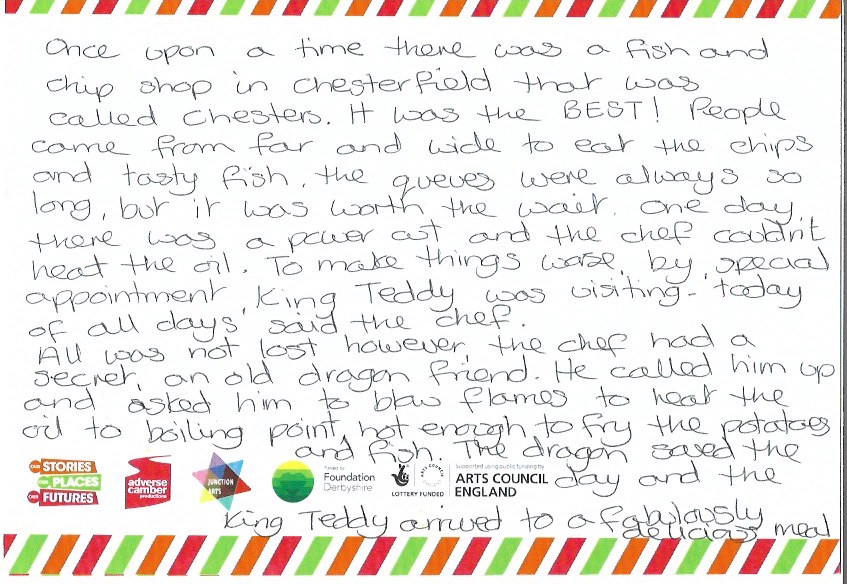 Once upon a time there was a fish and
chip shop in chesterfield that was
called Chesters. It was the BEST! People
came from far and wide to eat the chips
and tasty fish. the queues were always so
long, but it was worth the wait. One day,
there was a power cut and the chef couldn't
heat the oil. To make things worse, by special
appointment, King Teddy was visiting - today
of all days, said the chef.
All was not lost however, the chef had a
secret, an old dragon friend. He called him up
and asked him to blow flames to heat the
oil to boiling point, hot enough to fry the potatoes
and fish. The dragon saved the
day and the
King Teddy arrived to a fabulously
delicious meal
OUR STORIES
OUR PLACES
OUR FUTURES
adverse
camber
productions
JUNCTION
ARTS
Funded by
Foundation
Derbyshire
LOTTERY FUNDED
ARTS COUNCIL
ENGLAND
Supported using public funding by
ARTS COUNCIL
ENGLAND